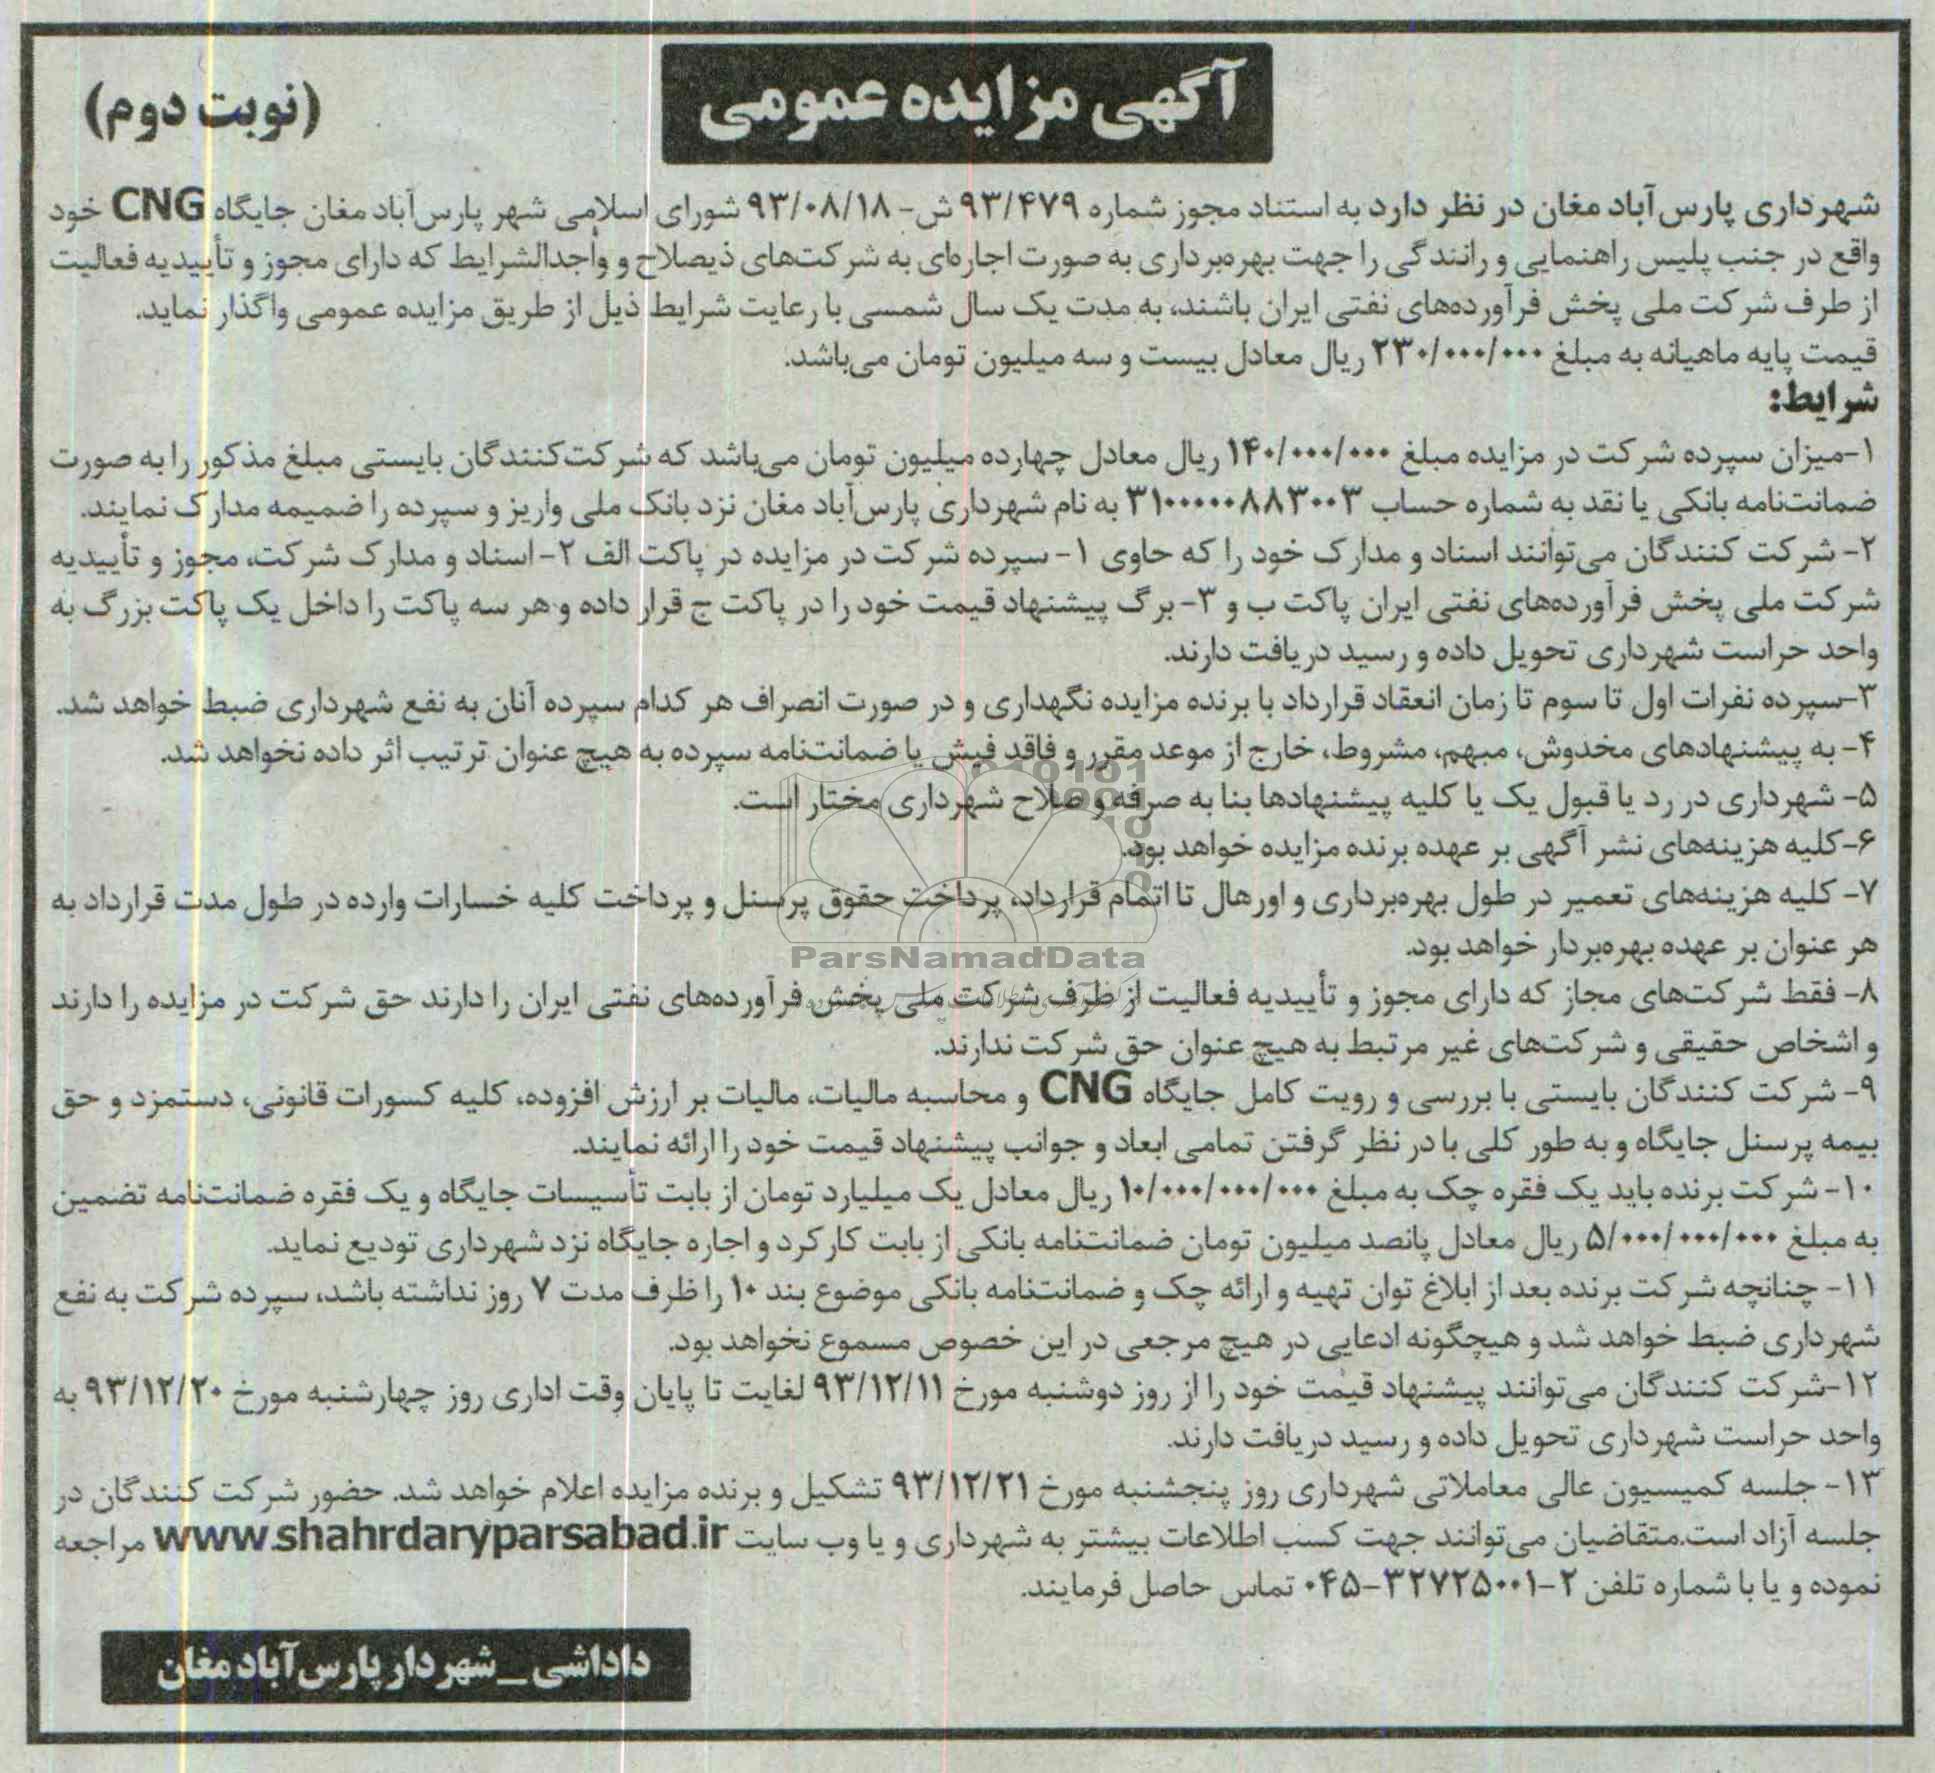 آگهی مزایده عمومی
(نوبت دوم)
شهرداری پارس‌آباد مغان در نظر دارد به استناد مجوز شماره ۹۳/۴۷۹ ش- ۹۳/۰۸/۱۸ شورای اسلامی شهر پارس‌آباد مغان جایگاه CNG خود
واقع در جنب پلیس راهنمایی و رانندگی را جهت بهره‌برداری به صورت اجاره‌ای به شرکت‌های ذیصلاح و واجدالشرایط که دارای مجوز و تأییدیه فعالیت
از طرف شرکت ملی پخش فرآورده‌های نفتی ایران باشند، به مدت یک سال شمسی با رعایت شرایط ذیل از طریق مزایده عمومی واگذار نماید.
قیمت پایه ماهیانه به مبلغ ۲۳۰/۰۰۰/۰۰۰ ریال معادل بیست و سه میلیون تومان می‌باشد.
شرایط:
۱-میزان سپرده شرکت در مزایده مبلغ ۱۴۰/۰۰۰/۰۰۰ ریال معادل چهارده میلیون تومان می‌باشد که شرکت‌کنندگان بایستی مبلغ مذکور را به صورت
ضمانت‌نامه بانکی یا نقد به شماره حساب ۳۱۰۰۰۰۰۸۸۳۰۰۳ به نام شهرداری پارس‌آباد مغان نزد بانک ملی واریز و سپرده را ضمیمه مدارک نمایند.
۲- شرکت کنندگان می‌توانند اسناد و مدارک خود را که حاوی ۱- سپرده شرکت در مزایده در پاکت الف ۲- اسناد و مدارک شرکت، مجوز و تأییدیه
شرکت ملی پخش فرآورده‌های نفتی ایران پاکت ب و ۳- برگ پیشنهاد قیمت خود را در پاکت ج قرار داده و هر سه پاکت را داخل یک پاکت بزرگ به
واحد حراست شهرداری تحویل داده و رسید دریافت دارند.
۳-سپرده نفرات اول تا سوم تا زمان انعقاد قرارداد با برنده مزایده نگهداری و در صورت انصراف هر کدام سپرده آنان به نفع شهرداری ضبط خواهد شد.
۴- به پیشنهادهای مخدوش، مبهم، مشروط، خارج از موعد مقرر و فاقد فیش یا ضمانت‌نامه سپرده به هیچ عنوان ترتیب اثر داده نخواهد شد.
۵- شهرداری در رد یا قبول یک یا کلیه پیشنهادها بنا به صرفه و صلاح شهرداری مختار است.
۶-کلیه هزینه‌های نشر آگهی بر عهده برنده مزایده خواهد بود.
۷- کلیه هزینه‌های تعمیر در طول بهره‌برداری و اورهال تا اتمام قرارداد، پرداخت حقوق پرسنل و پرداخت کلیه خسارات وارده در طول مدت قرارداد به
هر عنوان بر عهده بهره‌بردار خواهد بود.
ParsNamadData
۸- فقط شرکت‌های مجاز که دارای مجوز و تأییدیه فعالیت از طرف شرکت ملی پخش فرآورده‌های نفتی ایران را دارند حق شرکت در مزایده را دارند
و اشخاص حقیقی و شرکت‌های غیر مرتبط به هیچ عنوان حق شرکت ندارند.
۹- شرکت کنندگان بایستی با بررسی و رویت کامل جایگاه CNG و محاسبه مالیات، مالیات بر ارزش افزوده، کلیه کسورات قانونی، دستمزد و حق
بیمه پرسنل جایگاه و به طور کلی با در نظر گرفتن تمامی ابعاد و جوانب پیشنهاد قیمت خود را ارائه نمایند.
۱۰- شرکت برنده باید یک فقره چک به مبلغ ۱۰/۰۰۰/۰۰۰/۰۰۰ ریال معادل یک میلیارد تومان از بابت تأسیسات جایگاه و یک فقره ضمانت‌نامه تضمین
به مبلغ ۵/۰۰۰/۰۰۰/۰۰۰ ریال معادل پانصد میلیون تومان ضمانت‌نامه بانکی از بابت کارکرد و اجاره جایگاه نزد شهرداری تودیع نماید.
۱۱- چنانچه شرکت برنده بعد از ابلاغ توان تهیه و ارائه چک و ضمانت‌نامه بانکی موضوع بند ۱۰ را ظرف مدت ۷ روز نداشته باشد، سپرده شرکت به نفع
شهرداری ضبط خواهد شد و هیچگونه ادعایی در هیچ مرجعی در این خصوص مسموع نخواهد بود.
۱۲-شرکت کنندگان می‌توانند پیشنهاد قیمت خود را از روز دوشنبه مورخ ۹۳/۱۲/۱۱ لغایت تا پایان وقت اداری روز چهارشنبه مورخ ۹۳/۱۲/۲۰ به
واحد حراست شهرداری تحویل داده و رسید دریافت دارند.
۱۳- جلسه کمیسیون عالی معاملاتی شهرداری روز پنجشنبه مورخ ۹۳/۱۲/۲۱ تشکیل و برنده مزایده اعلام خواهد شد. حضور شرکت کنندگان در
جلسه آزاد است.متقاضیان می‌توانند جهت کسب اطلاعات بیشتر به شهرداری و یا وب سایت www.shahrdaryparsabad.ir مراجعه
نموده و یا با شماره تلفن ۲-۳۲۷۲۵۰۰۱-۰۴۵ تماس حاصل فرمایند.
داداشی _ شهردار پارس‌آباد مغان